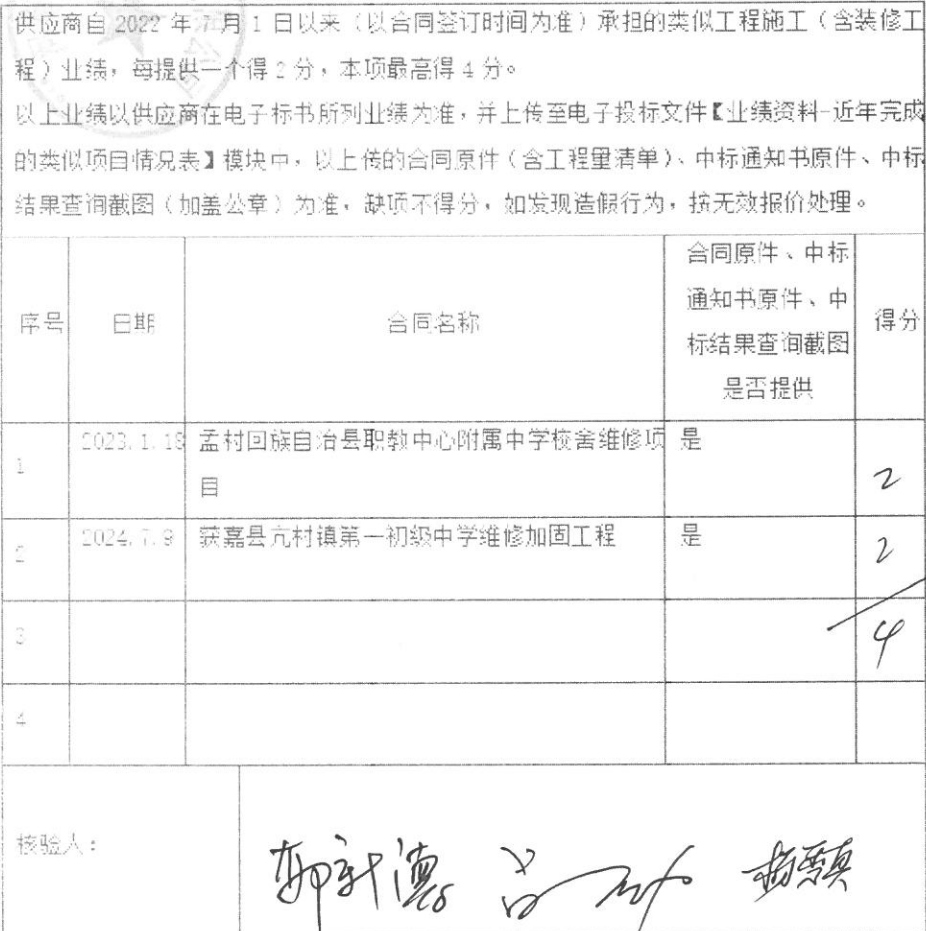 供应商自 2022 年 7 月 1 日以来（以合同签订时间为准）承担的类似工程施工（含装修工
程）业绩，每提供一个得 2 分，本项最高得 4 分。
以上业绩以供应商在电子标书所列业绩为准，并上传至电子投标文件【业绩资料-近年完成
的类似项目情况表】模块中，以上传的合同原件（含工程量清单）、中标通知书原件、中标
结果查询截图（加盖公章）为准，缺项不得分，如发现造假行为，按无效报价处理。
序号 日期 合同名称 合同原件、中标
通知书原件、中
标结果查询截图
是否提供 得分
1 2023.1.18 孟村回族自治县职教中心附属中学校舍维修项
目 是 2
2 2024.7.9 获嘉县亢村镇第一初级中学维修加固工程 是 2
3 4
4
核验人：